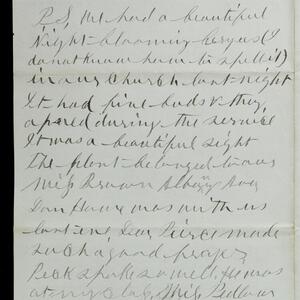 P.S. We had a beautiful
Night-blooming Cereus (I
do not know how to spell it)
in our Church last night
It had five buds & they
opened during the service
It was a beautiful sight
The plant belonged to
Miss Brown
was with us
last eve, Dea Pierce made
such a good prayer
Peck spoke so well, He was
at my Class, Mrs